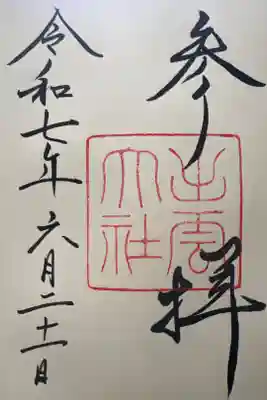 参拝
出雲大社
令和七年六月二十一日